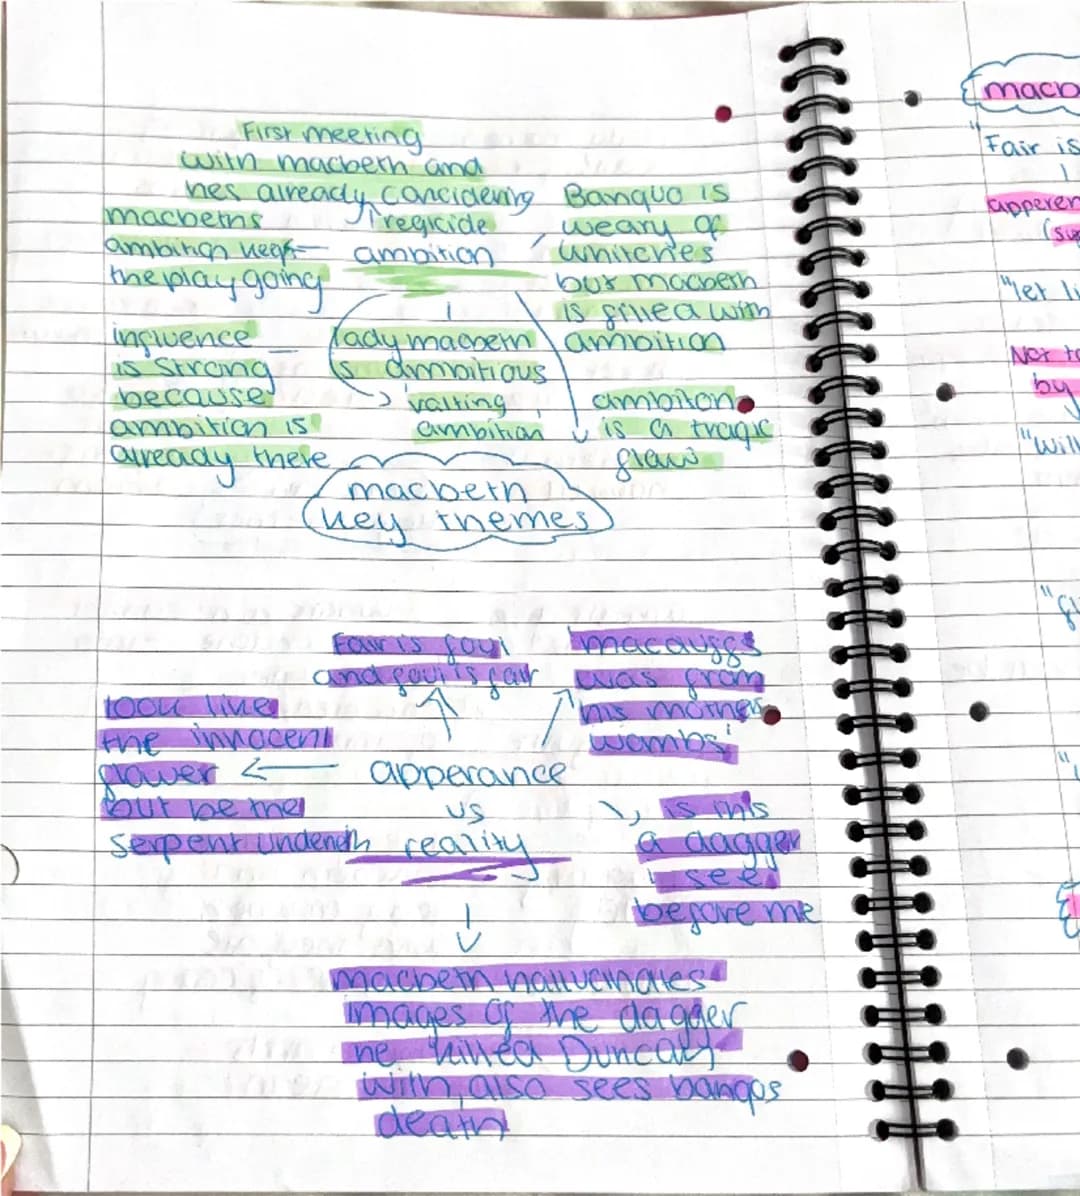 First meeting
with macbeth and
hes already concidering
regicide
macbeths
ambition keeps
the play going
ambition
Banquo is
weary of
whitches
but macbeth
is filled with
ambition
influence
is strong
because
ambition is
already there
lady macbeth
is ambitious
'valting
ambition'
ambiton
is a tragic
flaw
macbeth
key themes
Fair is foul
and foul is fair
'macduffs
was from
his mothers
wombs'
look like
the innocent
flower
but be the
serpent underneth
apperance
vs
reality
is this
a dagger
i see
before me
macbeth hallucinates
images of the dagger
he killed Duncan
with, also sees banqos
death
macb
"Fair is
apperen
(su
"let li
Not to
by
"will